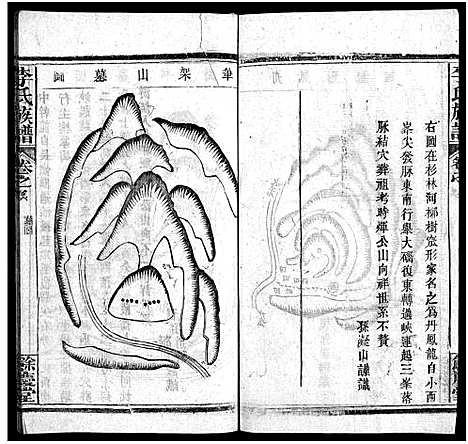 李氏族譜
右圖在杉林河椰樹窊形家名之為丹鳳龍自小西
峯尖發脉東南行舉大礄復東轉過峽連起三峯落
脉結穴葬祖考時輝公山向祥世系不贅
孫凝山謹識
筆架山墓圖
李氏族譜
卷之
墓圖
餘慶堂